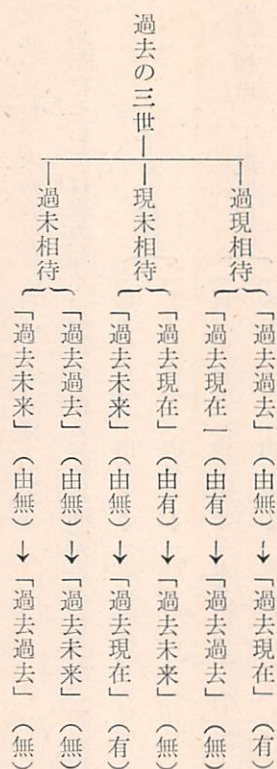 過去の三世
過現相待
「過去過去」（由無）→「過去現在」（有）
「過去現在」（由有）→「過去過去」（無）
現未相待
「過去現在」（由有）→「過去未来」（無）
「過去未来」（由無）→「過去現在」（有）
過未相待
「過去過去」（由無）→「過去未来」（無）
「過去未来」（由無）→「過去過去」（無）